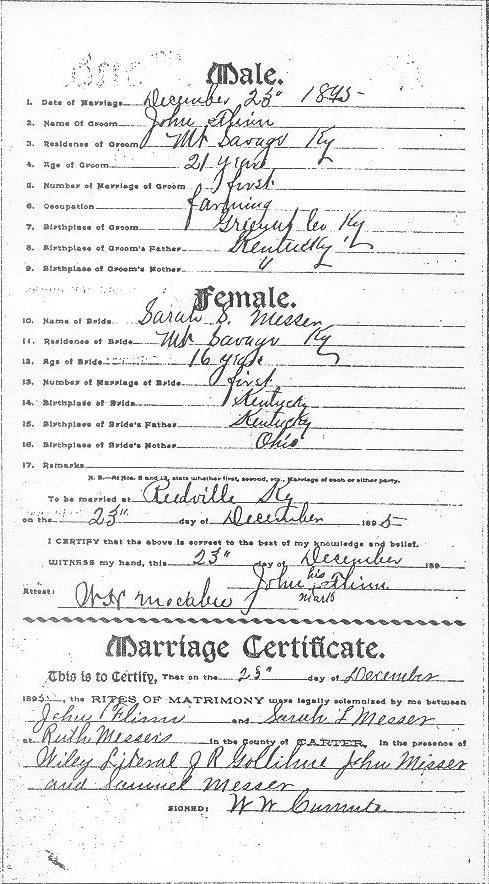 Male.
1. Date of Marriage December 25" 1895
2. Name Of Groom John Flinn
3. Residence of Groom Mt Savage Ky
4. Age of Groom 21 years
5. Number of Marriage of Groom first
6. Occupation farming
7. Birthplace of Groom Greenup Co Ky
8. Birthplace of Groom's Father Kentucky
9. Birthplace of Groom's Mother "
Female.
10. Name of Bride Sarah S. Messer
11. Residence of Bride Mt Savage Ky
12. Age of Bride 16 years
13. Number of Marriage of Bride first
14. Birthplace of Bride Kentucky
15. Birthplace of Bride's Father Kentucky
16. Birthplace of Bride's Mother Ohio
17. Remarks
N. B.—At Nos. 5 and 13, state whether first, second, etc., Marriage of each or either party.
To be married at Reedville Ky
on the 25" day of December 1895
I CERTIFY that the above is correct to the best of my knowledge and belief.
WITNESS my hand, this 23" day of December 189
John his x mark Flinn
Attest: W.W. McCabe
Marriage Certificate.
This is to Certify, That on the 25" day of December
1895, the RITES OF MATRIMONY were legally solemnized by me between
John Flinn and Sarah L Messer
at Ruth Messers in the County of CARTER, in the presence of
Wiley Literal J R Gollihue John Messer
and Samuel Messer
SIGNED: W W